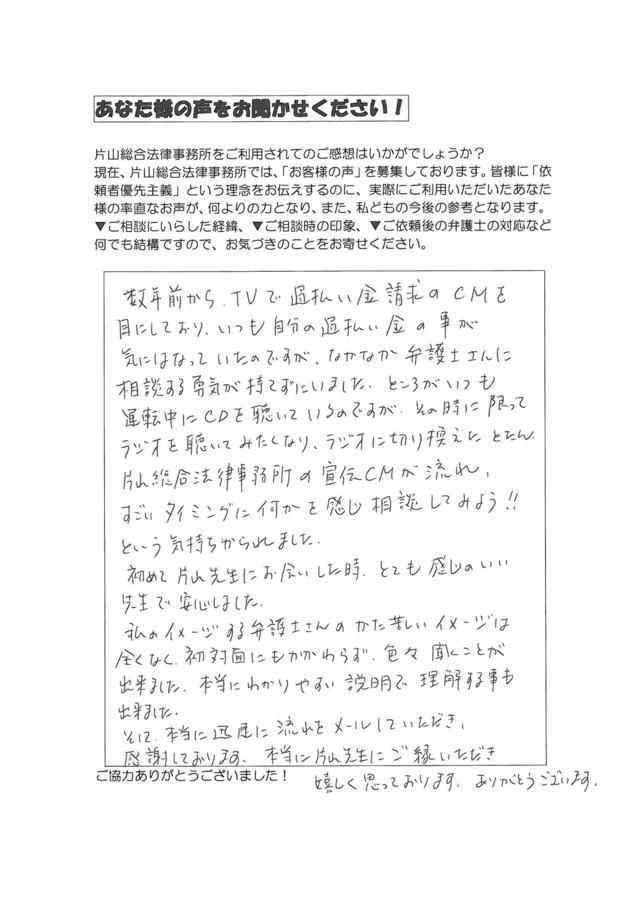 あなた様の声をお聞かせください！
片山総合法律事務所をご利用されてのご感想はいかがでしょうか？
現在、片山総合法律事務所では、「お客様の声」を募集しております。皆様に「依
頼者優先主義」という理念をお伝えするのに、実際にご利用いただいたあなた
様の率直なお声が、何よりの力となり、また、私どもの今後の参考となります。
▼ご相談にいらした経緯、▼ご相談時の印象、▼ご依頼後の弁護士の対応など
何でも結構ですので、お気づきのことをお寄せください。
数年前から、TVで過払い金請求のCMを
目にしており、いつも自分の過払い金の事が
気にはなっていたのですが、なかなか弁護士さんに
相談する勇気が持てずにいました。ところがいつも
運転中にCDを聴いているのですが、その時に限って
ラジオを聴いてみたくなり、ラジオに切り換えたとたん、
片山総合法律事務所の宣伝CMが流れ、
すごいタイミングに何かを感じ相談してみよう!!
という気持ちかられました。
初めて片山先生にお会いした時、とても感じのいい
先生で安心しました。
私のイメージする弁護士さんのかた苦しいイメージは
全くなく、初対面にもかかわらず、色々聞くことが
出来ました。本当にわかりやすい説明で理解する事も
出来ました。
そして、本当に迅速に流れをメールしていただき、
感謝しております。本当に片山先生にご縁いただき
嬉しく思っております。ありがとうございます。
ご協力ありがとうございました！